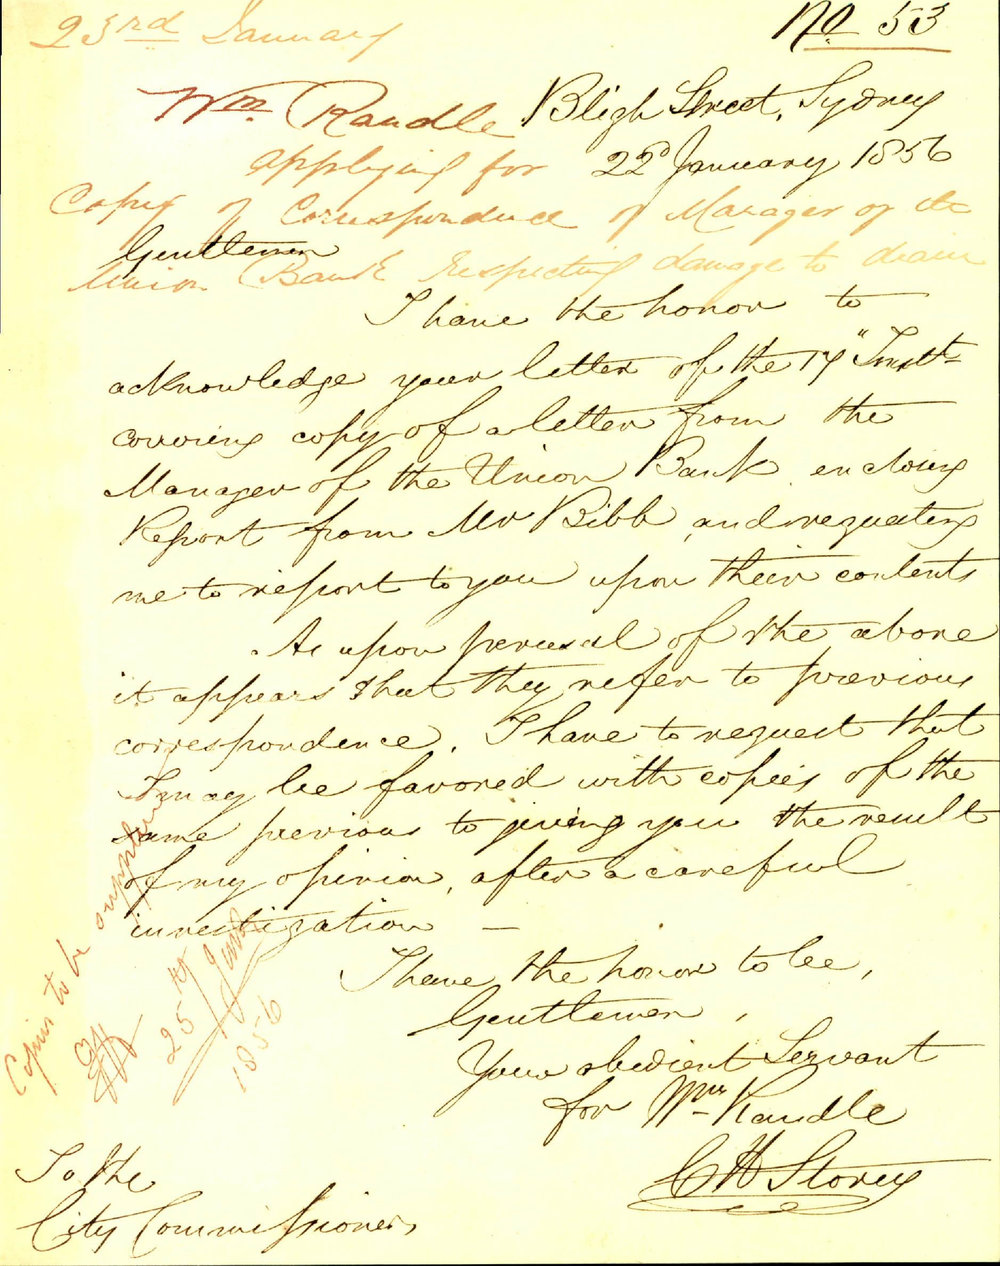 23rd January
No 53
Wm Randle
Bligh Street, Sydney
applying for
22d January 1856
Copy of Correspondence of Manager of the
Union Bank respecting damage to drain
Gentlemen
I have the honor to
acknowledge your letter of the 17" Instt
covering copy of a letter from the
Manager of the Union Bank enclosing
Report from Mr Bibb, and requesting
me to report to you upon their contents
As upon perusal of the above
it appears that they refer to previous
correspondence. I have to request that
I may be favored with copies of the
same previous to giving you the result
of my opinion, after a careful
investization —
I have the honor to be,
Gentlemen,
Your obedient Servant
for Wm Randle
C H Storey
To the
City Commissioners
Copies to be supplied
25th Jan
1856